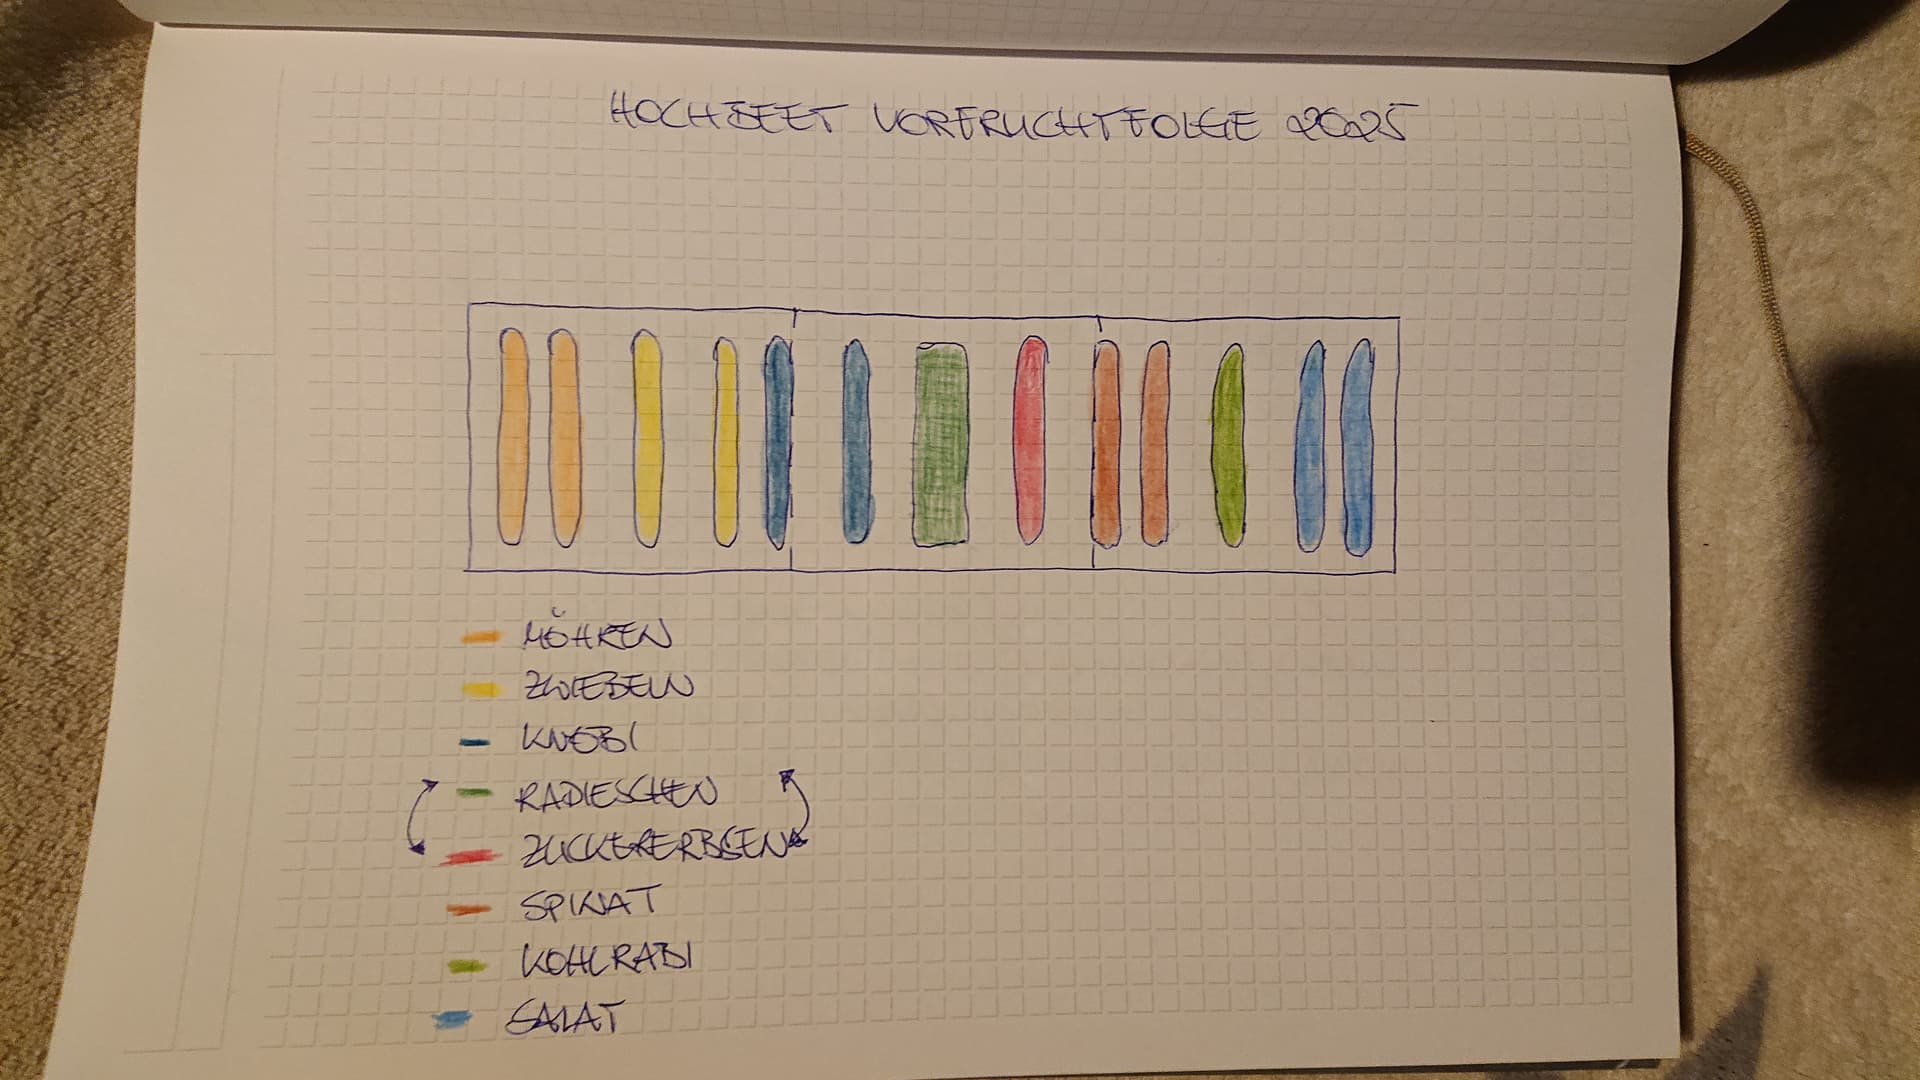 HOCHBEET VORFRUCHTFOLGE 2025
MÖHREN
ZWIEBELN
KNOBI
RADIESCHEN
ZUCKERERBSEN
SPINAT
KOHLRABI
SALAT